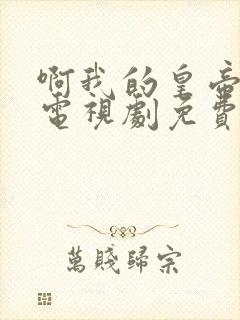 啊我的皇帝
電視劇免費
萬賤歸宗